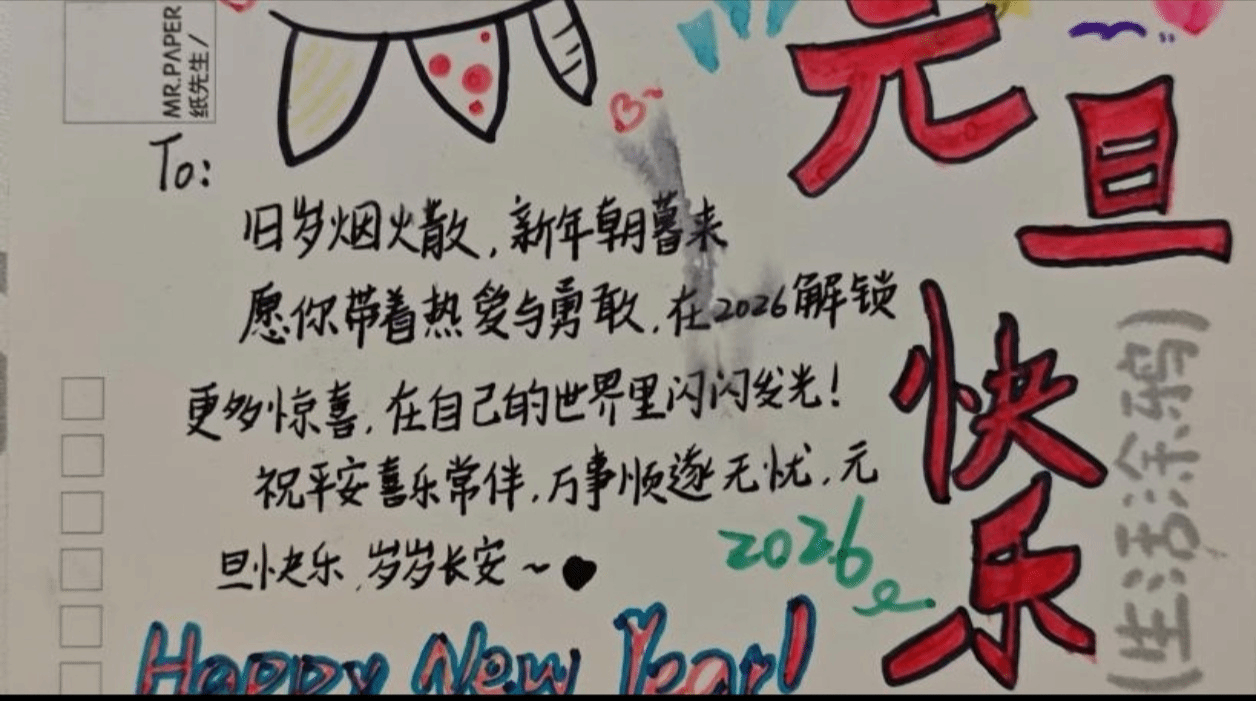 MR.PAPER
纸先生/
To:
旧岁烟火散,新年朝暮来
愿你带着热爱与勇敢,在2026解锁
更多惊喜,在自己的世界里闪闪发光!
祝平安喜乐常伴,万事顺遂无忧,元
旦快乐,岁岁长安~
2026
Happy New Year!
元旦
快乐
(生活涂鸦)